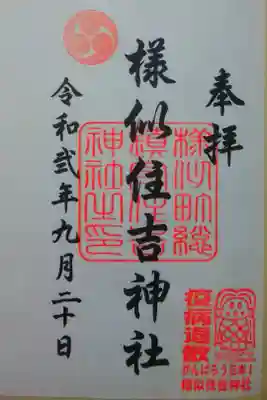 奉拝
様似住吉神社
令和弐年九月二十日
様似町総
鎮守住吉
神社之印
疫病退散
がんばろう日本!
様似住吉神社